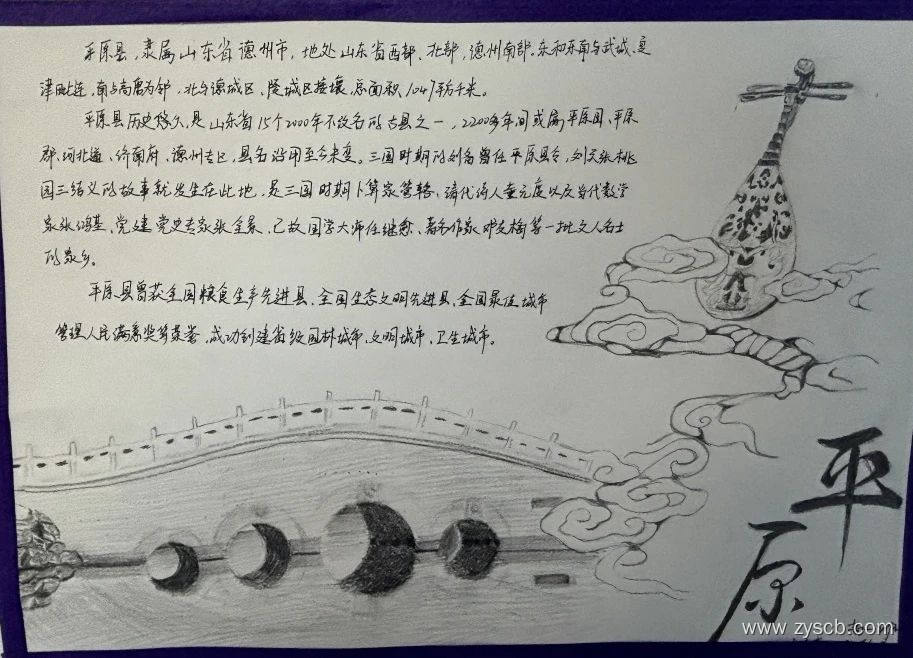 平原县,隶属山东省德州市,地处山东省西部、北部,德州南部.东和东南与武城、夏
津毗连,南与高唐为邻,北与德城区、陵城区接壤,总面积1047平方千米。
平原县历史悠久,是山东省15个2000年不改名的古县之一,2200多年间或属平原国、平原
郡、河北道、济南府、德州专区,县名沿用至今未变。三国时期的刘备曾任平原县令,刘关张桃
园三结义的故事就发生在此地,是三国时期卜算家管辂、清代诗人董元度以及当代数学
家张海基、党建党史专家张全景、已故国学大师任继愈、著名作家邓友梅等一批文人名士
的家乡。
平原县曾获全国粮食生产先进县、全国生态文明先进县、全国最佳城市
管理人民满意奖等荣誉,成功创建省级园林城市、文明城市、卫生城市。
平
原
www.zyscb.com